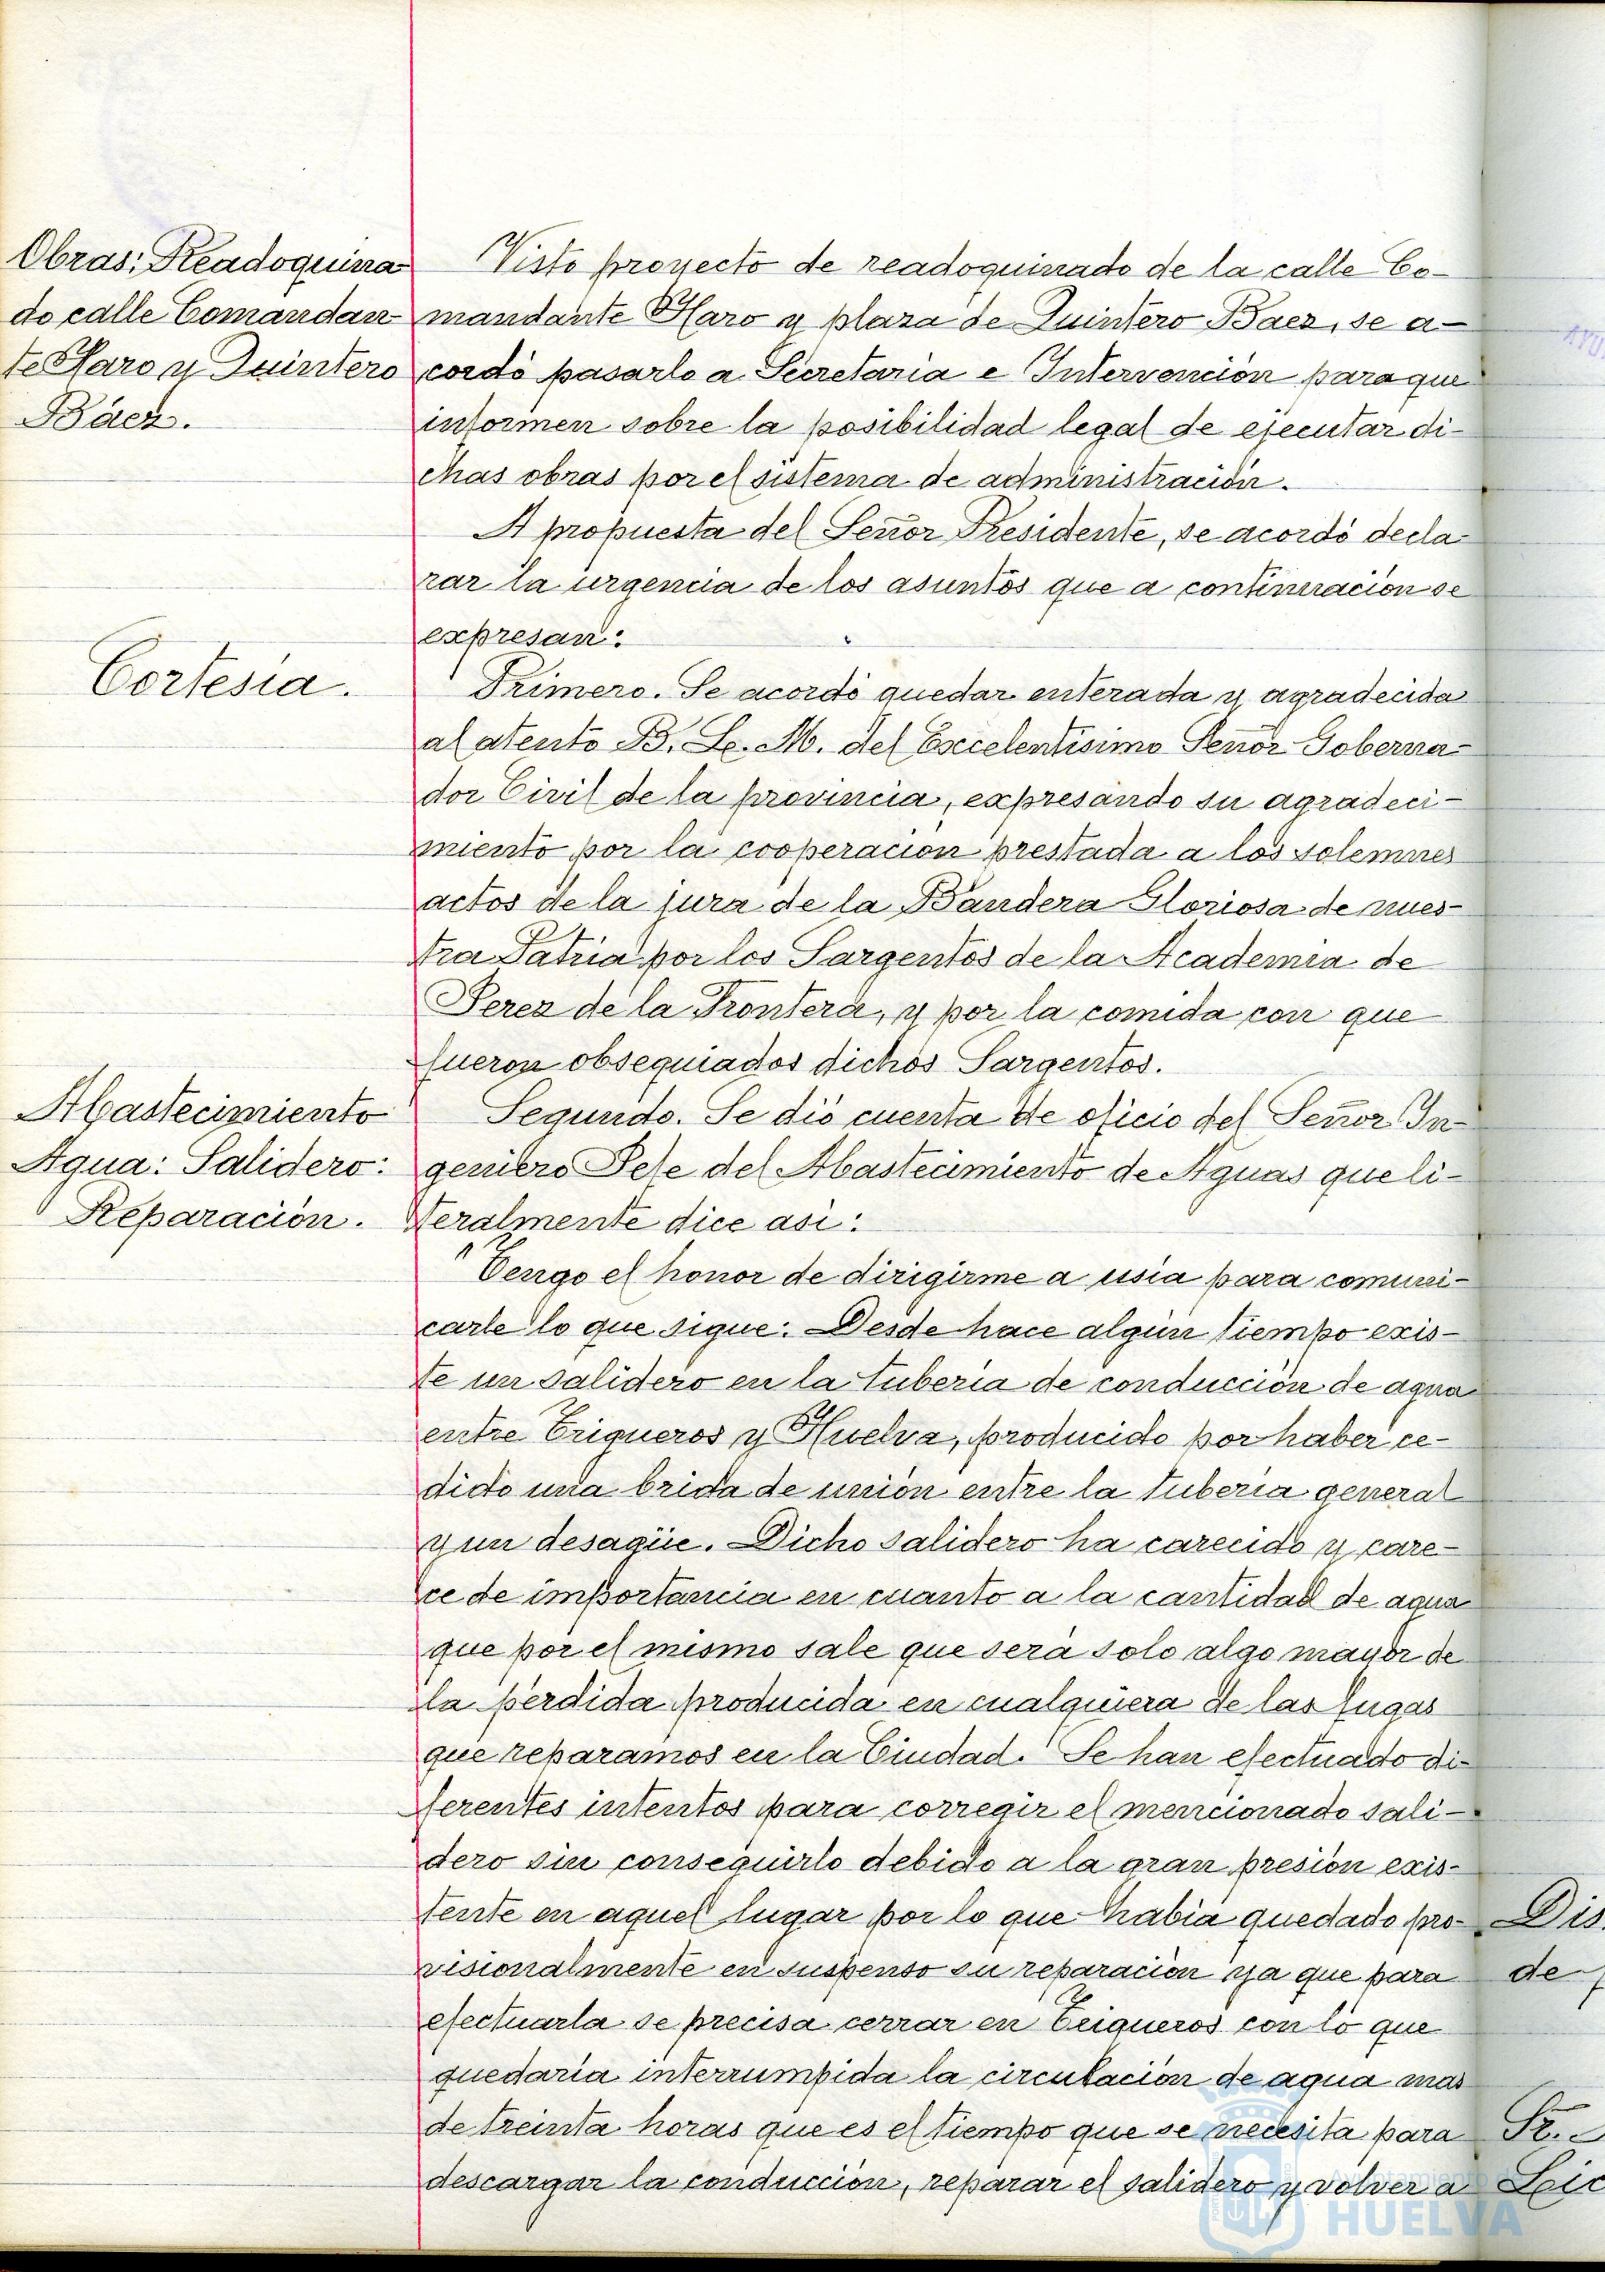 Obras: Readoquina
do calle Comandan
te Haro y Quintero
Báez.
Visto proyecto de readoquinado de la calle Co-
mandante Haro y plaza de Quintero Baez, se a-
cordó pasarlo a Secretaria e Intervención para que
informen sobre la posibilidad legal de ejecutar di-
chas obras por el sistema de administración.
A propuesta del Señor Presidente, se acordó decla-
rar la urgencia de los asuntos que a continuación se
expresan:
Cortesía.
Primero. Se acordó quedar enterada y agradecida
al atento B. L. M. del Excelentísimo Señor Goberna-
dor Civil de la provincia, expresando su agradeci-
miento por la cooperación prestada a los solemnes
actos de la jura de la Bandera Gloriosa de nues-
tra Patria por los Sargentos de la Academia de
Jerez de la Frontera, y por la comida con que
fueron obsequiados dichos Sargentos.
Abastecimiento
Agua: Salidero:
Reparación.
Segundo. Se dió cuenta de oficio del Señor In-
geniero Jefe del Abastecimiento de Aguas que li-
teralmente dice así:
"Tengo el honor de dirigirme a usía para comuni-
carle lo que sigue: Desde hace algún tiempo exis-
te un salidero en la tubería de conducción de agua
entre Trigueros y Huelva, producido por haber ce-
dido una brida de unión entre la tubería general
y un desagüe. Dicho salidero ha carecido y care-
ce de importancia en cuanto a la cantidad de agua
que por el mismo sale que será solo algo mayor de
la pérdida producida en cualquiera de las fugas
que reparamos en la Ciudad. Se han efectuado di-
ferentes intentos para corregir el mencionado sali-
dero sin conseguirlo debido a la gran presión exis-
tente en aquel lugar por lo que había quedado pro-
visionalmente en suspenso su reparación ya que para
efectuarla se precisa cerrar en Trigueros con lo que
quedaría interrumpida la circulación de agua mas
de treinta horas que es el tiempo que se necesita para
descargar la conducción, reparar el salidero y volver a
Dis.
de
Sr.
Ayuntamiento de
HUELVA